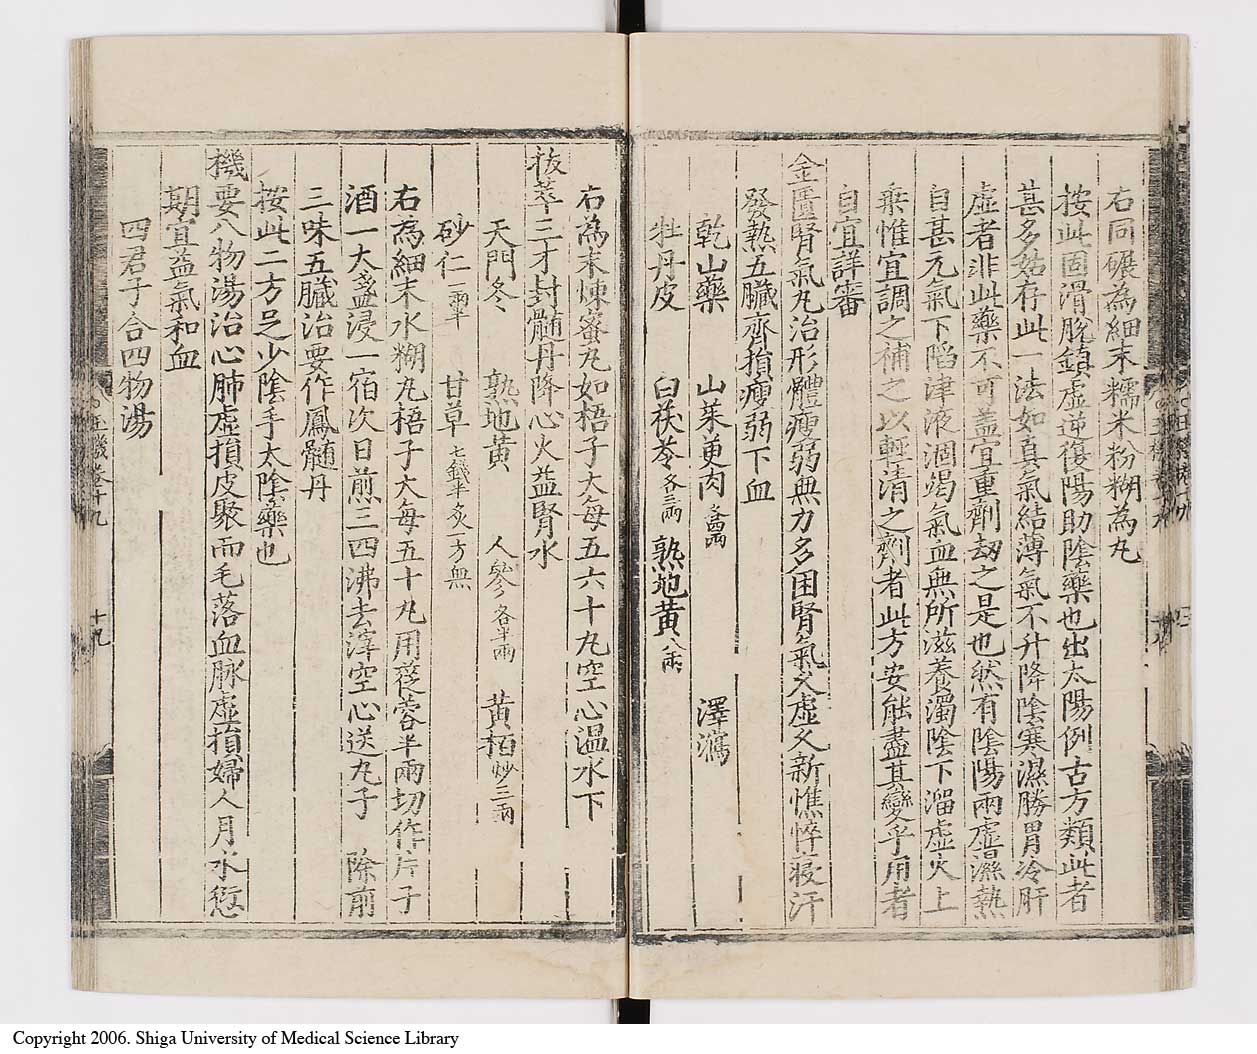 右同碾為細末糯米粉糊為丸
按此固滑脫鎮虛逆復陽助陰藥也出太陽例古方類此者
甚多姑存此一法如真氣結薄氣不升降陰寒濕勝胃冷肝
虛者非此藥不可盖宜重劑劫之是也然有陰陽兩虛濕熱
自甚元氣下陷津液涸竭氣血無所滋養濁陰下溜虛火上
乘惟宜調之補之以輕清之劑者此方安能盡其變乎用者
自宜詳審
金匱腎氣丸治形體瘦弱無力多困腎氣久虛久新憔悴寢汗
發熱五臟齊損瘦弱下血
乾山藥 山茱萸肉各四兩 澤瀉
牡丹皮 白茯苓各三兩 熟地黃八兩
右為末煉蜜丸如梧子大每五六十丸空心温水下
拔萃三才封髓丹降心火益腎水
天門冬 熟地黃 人參各半兩 黃栢炒三兩
砂仁一兩半 甘草七錢半炙一方無
右為細末水糊丸梧子大每五十丸用蓯蓉半兩切作片子
酒一大盞浸一宿次日煎三四沸去滓空心送丸子 除前
三味五臟治要作鳳髓丹
按此二方足少陰手太陰藥也
機要八物湯治心肺虛損皮聚而毛落血脉虛損婦人月水愆
期宜益氣和血
四君子合四物湯
玉機卷十九
十九
Copyright 2006. Shiga University of Medical Science Library